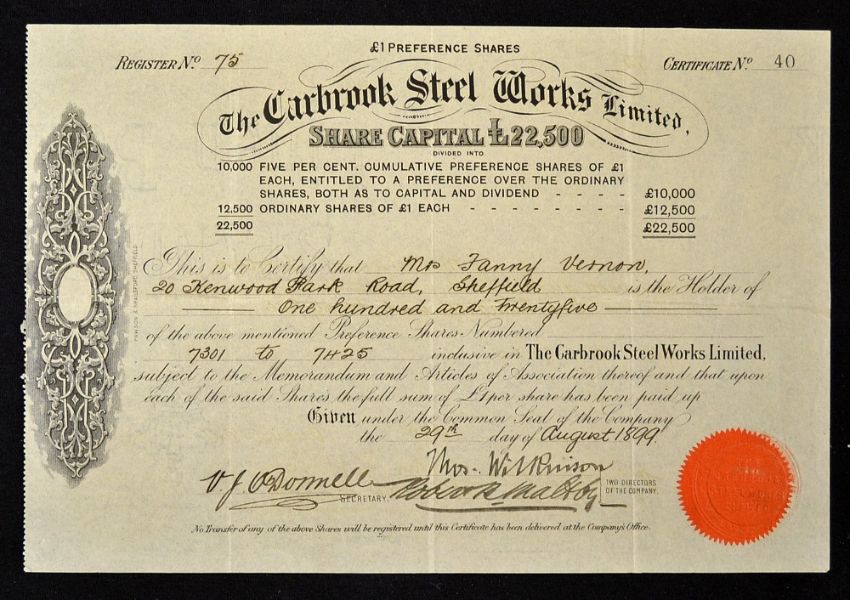 £1 PREFERENCE SHARES
REGISTER No 75
CERTIFICATE No 40
The Carbrook Steel Works Limited,
SHARE CAPITAL £22,500
DIVIDED INTO
10,000 FIVE PER CENT. CUMULATIVE PREFERENCE SHARES OF £1
EACH, ENTITLED TO A PREFERENCE OVER THE ORDINARY
SHARES, BOTH AS TO CAPITAL AND DIVIDEND - - - - £10,000
12,500 ORDINARY SHARES OF £1 EACH - - - - - - - - £12,500
22,500 £22,500
This is to Certify that Mrs Fanny Vernon,
20 Kenwood Park Road, Sheffield is the Holder of
One hundred and Twentyfive
of the above mentioned Preference Shares Numbered
7301 to 7425 inclusive in The Carbrook Steel Works Limited,
subject to the Memorandum and Articles of Association thereof and that upon
each of the said Shares the full sum of £1 per share has been paid up
Given under the Common Seal of the Company
the 29th day of August 1899
Thos. Wilkinson
V. J. O'Donnell
SECRETARY
Robert Maltby
TWO DIRECTORS
OF THE COMPANY.
No Transfer of any of the above Shares will be registered until this Certificate has been delivered at the Company's Office.
PAWSON & BRAILSFORD, SHEFFIELD